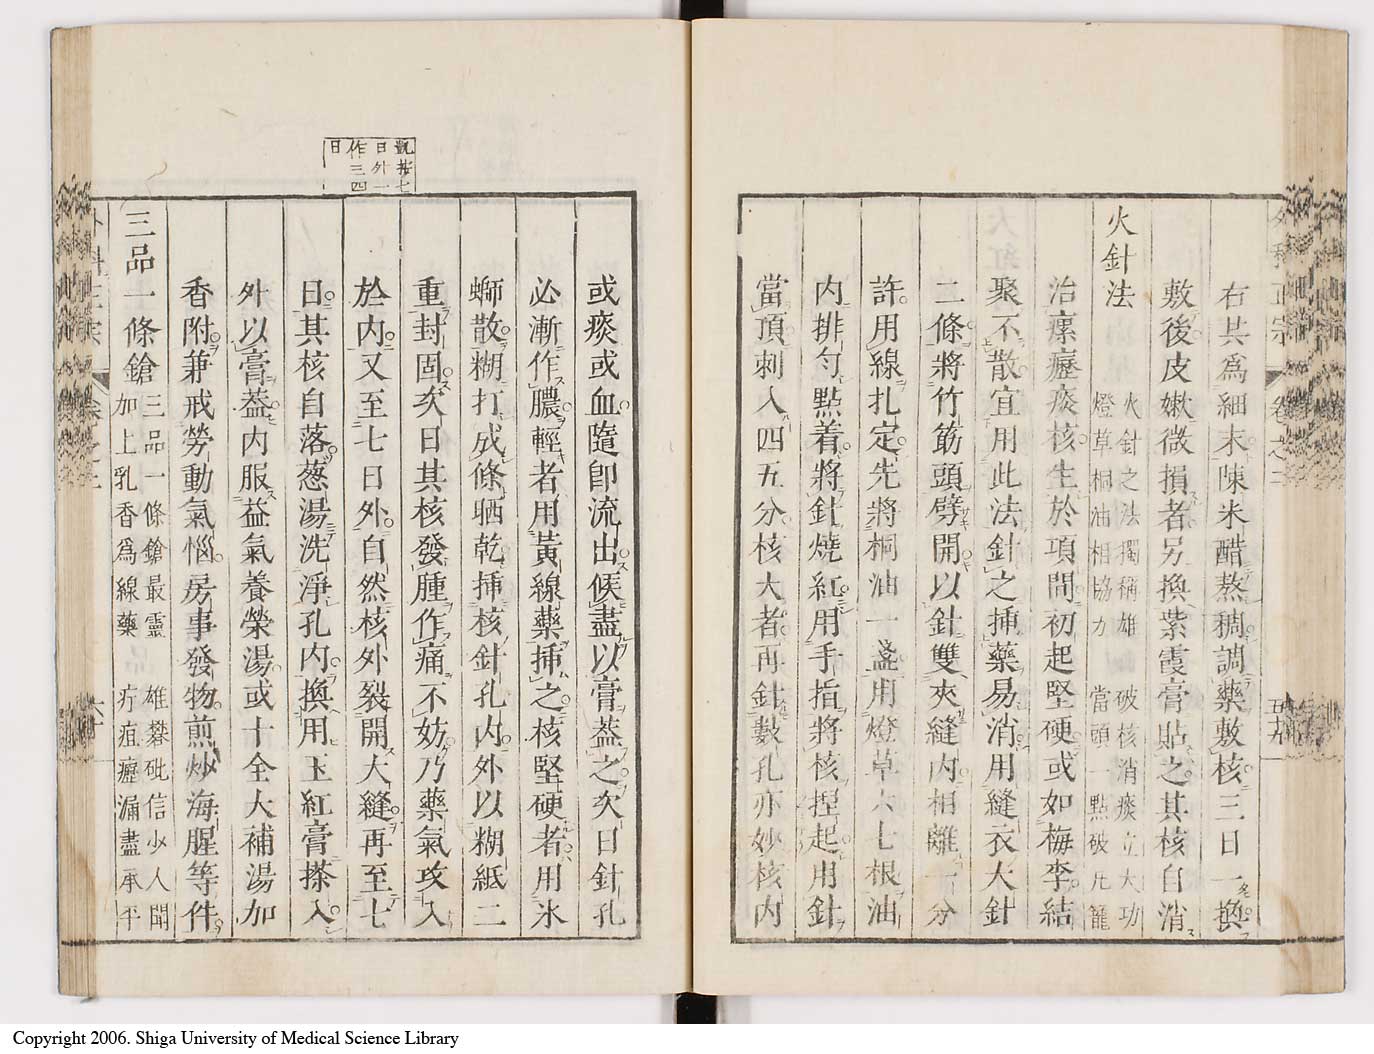 右共爲細末陳米醋熬稠調藥敷核三日一換
敷後皮嫩微損者另換紫霞膏貼之其核自消
火針法
火針之法獨稱雄 破核消痰立大功
燈草桐油相協力 當頭一點破凡籠
治瘰癧痰核生於項間初起堅硬或如梅李結
聚不散宜用此法針之揷藥易消用縫衣大針
二條將竹筋頭劈開以針雙夾縫內相離一分
許用線扎定先將桐油一盞用燈草六七根油
內排勻點着將針燒紅用手指將核捏起用針
當頂刺入四五分核大者再針數孔亦妙核內
或痰或血隨卽流出候盡以膏葢之次日針孔
必漸作膿輕者用黃線藥揷之核堅硬者用氷
螄散糊打成條晒乾揷核針孔內外以糊紙二
重封固次日其核發腫作痛不妨乃藥氣攻入
於內又至七日外自然核外裂開大縫再至七
日其核自落葱湯洗淨孔內換用玉紅膏搽入
外以膏葢內服益氣養榮湯或十全大補湯加
香附兼戒勞動氣惱房事發物煎炒海腥等件
三品一條鎗
三品一條鎗最靈 雄礬砒信少人聞
加上乳香爲線藥 疔疽癧漏盡承平
凱按七
日外一
作三四
日
外科正宗 卷之二
五十九